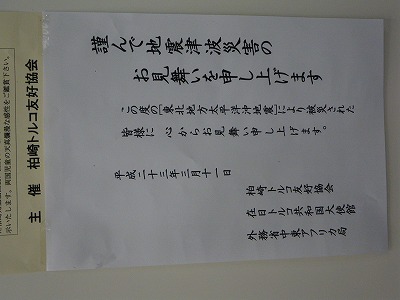 謹んで地震津波災害の
お見舞いを申し上げます
この度の「東北地方太平洋沖地震」により被災された
皆様に 心からお見舞い申し上げます。
平成二十三年三月十一日
柏崎トルコ友好協会
在日トルコ共和国大使館
外務省中東アフリカ局
示いたします。両国児童の天真爛漫な感性をご鑑賞下さい。
主 催 柏崎トルコ友好協会